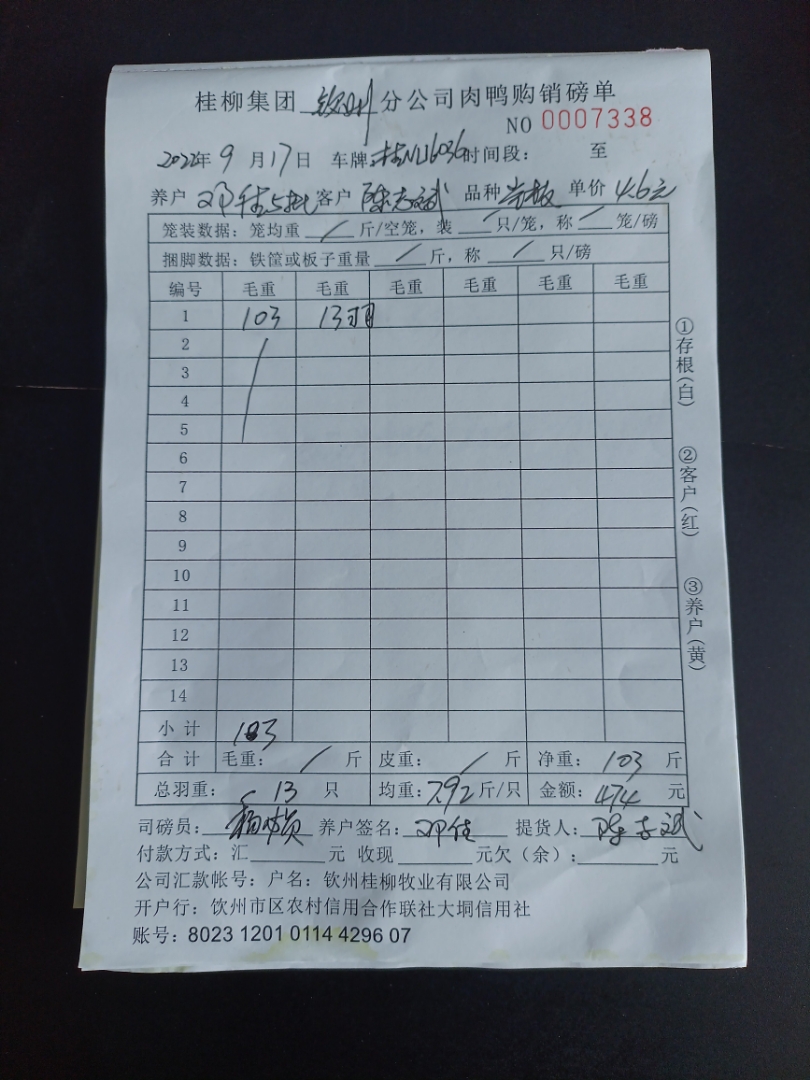 桂柳集团 钦州 分公司肉鸭购销磅单
NO 0007338
2022年 9 月 17 日 车牌: 桂NU6036 时间段: 至
养户 邓佳5批 客户 陈志斌 品种 单价 4.6元
笼装数据: 笼均重 / 斤/空笼, 装 / 只/笼, 称 / 笼/磅
捆脚数据: 铁筐或板子重量 / 斤, 称 / 只/磅
编号 毛重 毛重 毛重 毛重 毛重 毛重
1 103 13羽
2
3
4
5
6
7
8
9
10
11
12
13
14
小计 103
合计 毛重: / 斤 皮重: / 斤 净重: 103 斤
总羽重: 13 只 均重: 7.92 斤/只 金额: 474 元
司磅员: 养户签名: 邓佳 提货人: 陈志斌
付款方式: 汇 元 收现 元欠(余): 元
公司汇款帐号: 户名: 钦州桂柳牧业有限公司
开户行: 饮州市区农村信用合作联社大垌信用社
账号: 8023 1201 0114 4296 07
①存根(白)
②客户(红)
③养户(黄)